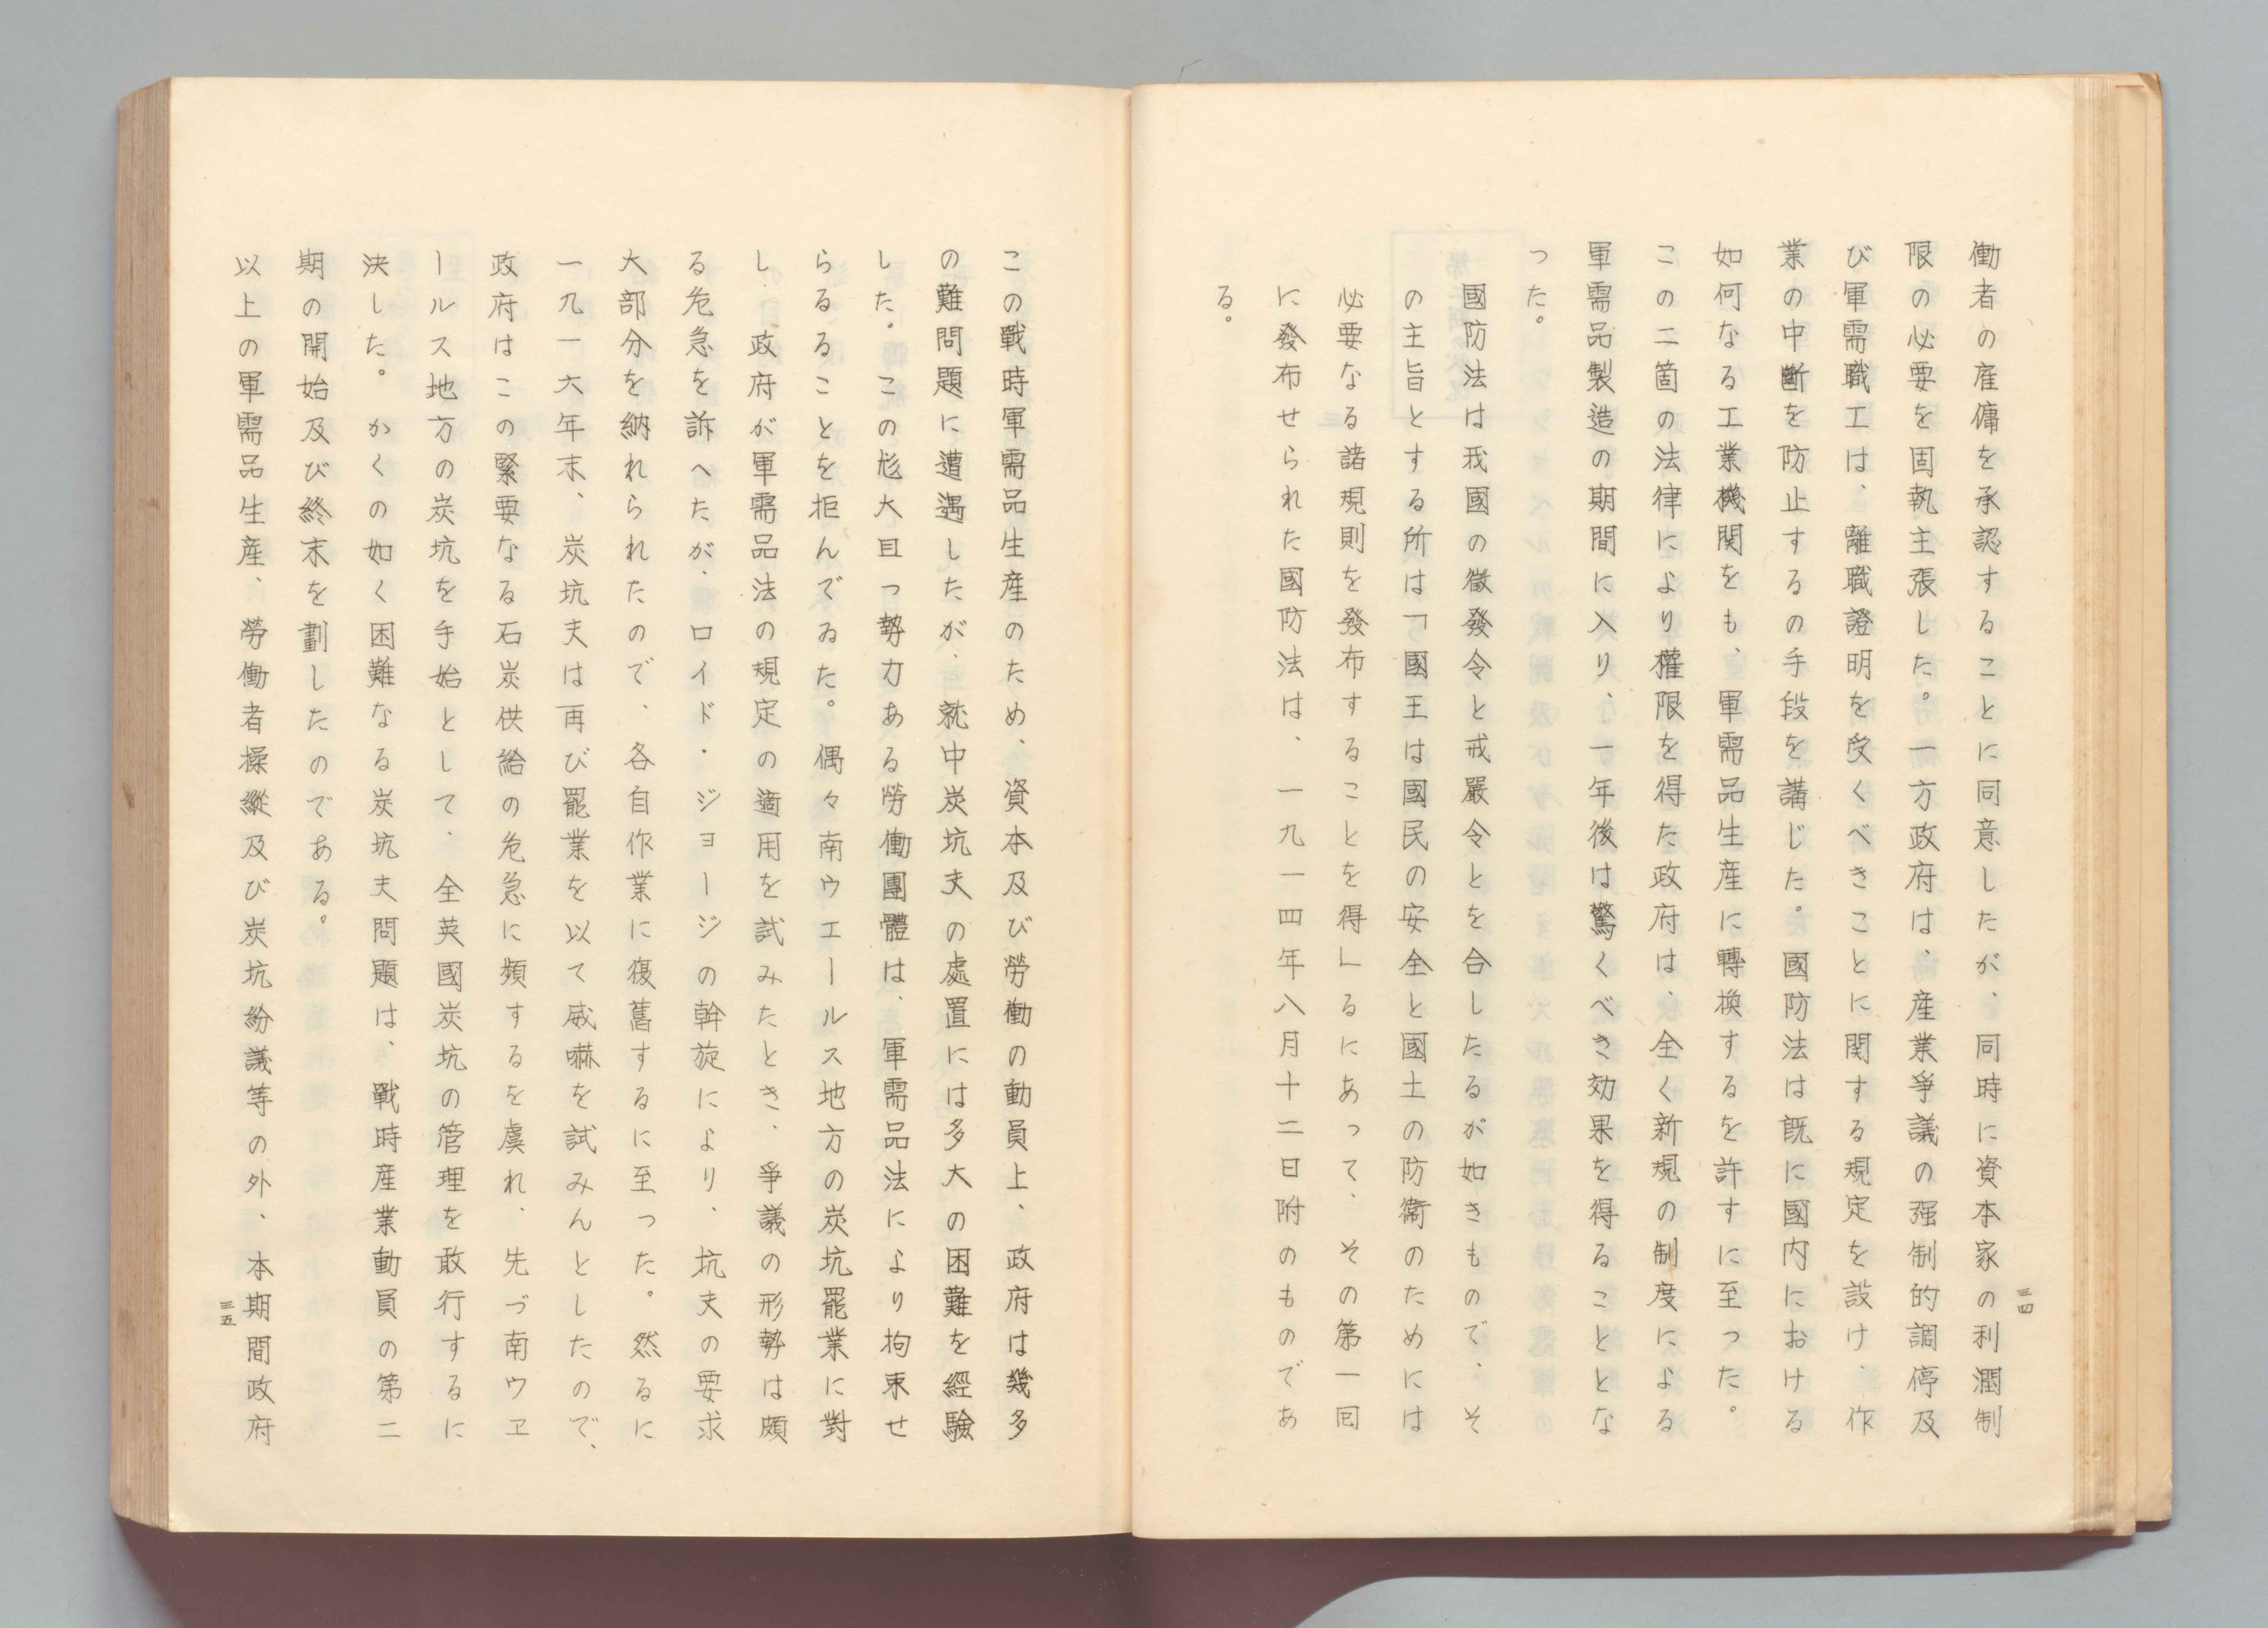 三四
働者の産傭を承認することに同意したが、同時に資本家の利潤制
限の必要を固執主張した。一方政府は、産業爭議の强制的調停及
び軍需職工は、離職證明を受くべきことに関する規定を設け、作
業の中斷を防止するの手段を講じた。國防法は既に國内における
如何なる工業機関をも、軍需品生産に轉換するを許すに至った。
この二箇の法律により權限を得た政府は、全く新規の制度による
軍需品製造の期間に入り、一年後は驚くべき効果を得ることとな
った。
國防法は我國の徵發令と戒嚴令とを合したるが如きもので、そ
の主旨とする所は「國王は國民の安全と國土の防衞のためには
必要なる諸規則を發布することを得」るにあって、その第一回
に發布せられた國防法は、一九一四年八月十二日附のものであ
る。
この戰時軍需品生産のため、資本及び勞働の動員上、政府は幾多
の難問題に遭遇したが、就中炭坑夫の處置には多大の困難を經驗
した。この尨大且つ勢力ある勞働團體は、軍需品法により拘束せ
らるることを拒んでゐた。偶々南ウエールス地方の炭坑罷業に對
し、政府が軍需品法の規定の適用を試みたとき、爭議の形勢は頗
る危急を訴へたが、ロイド・ジョージの斡旋により、坑夫の要求
大部分を納れられたので、各自作業に復舊するに至った。然るに
一九一六年末、炭坑夫は再び罷業を以て威嚇を試みんとしたので、
政府はこの緊要なる石炭供給の危急に頻するを虞れ、先づ南ウヱ
ールス地方の炭坑を手始として、全英國炭坑の管理を敢行するに
決した。かくの如く困難なる炭坑夫問題は、戰時産業動員の第二
期の開始及び終末を劃したのである。
以上の軍需品生産、勞働者操縱及び炭坑紛議等の外、本期間政府
三五